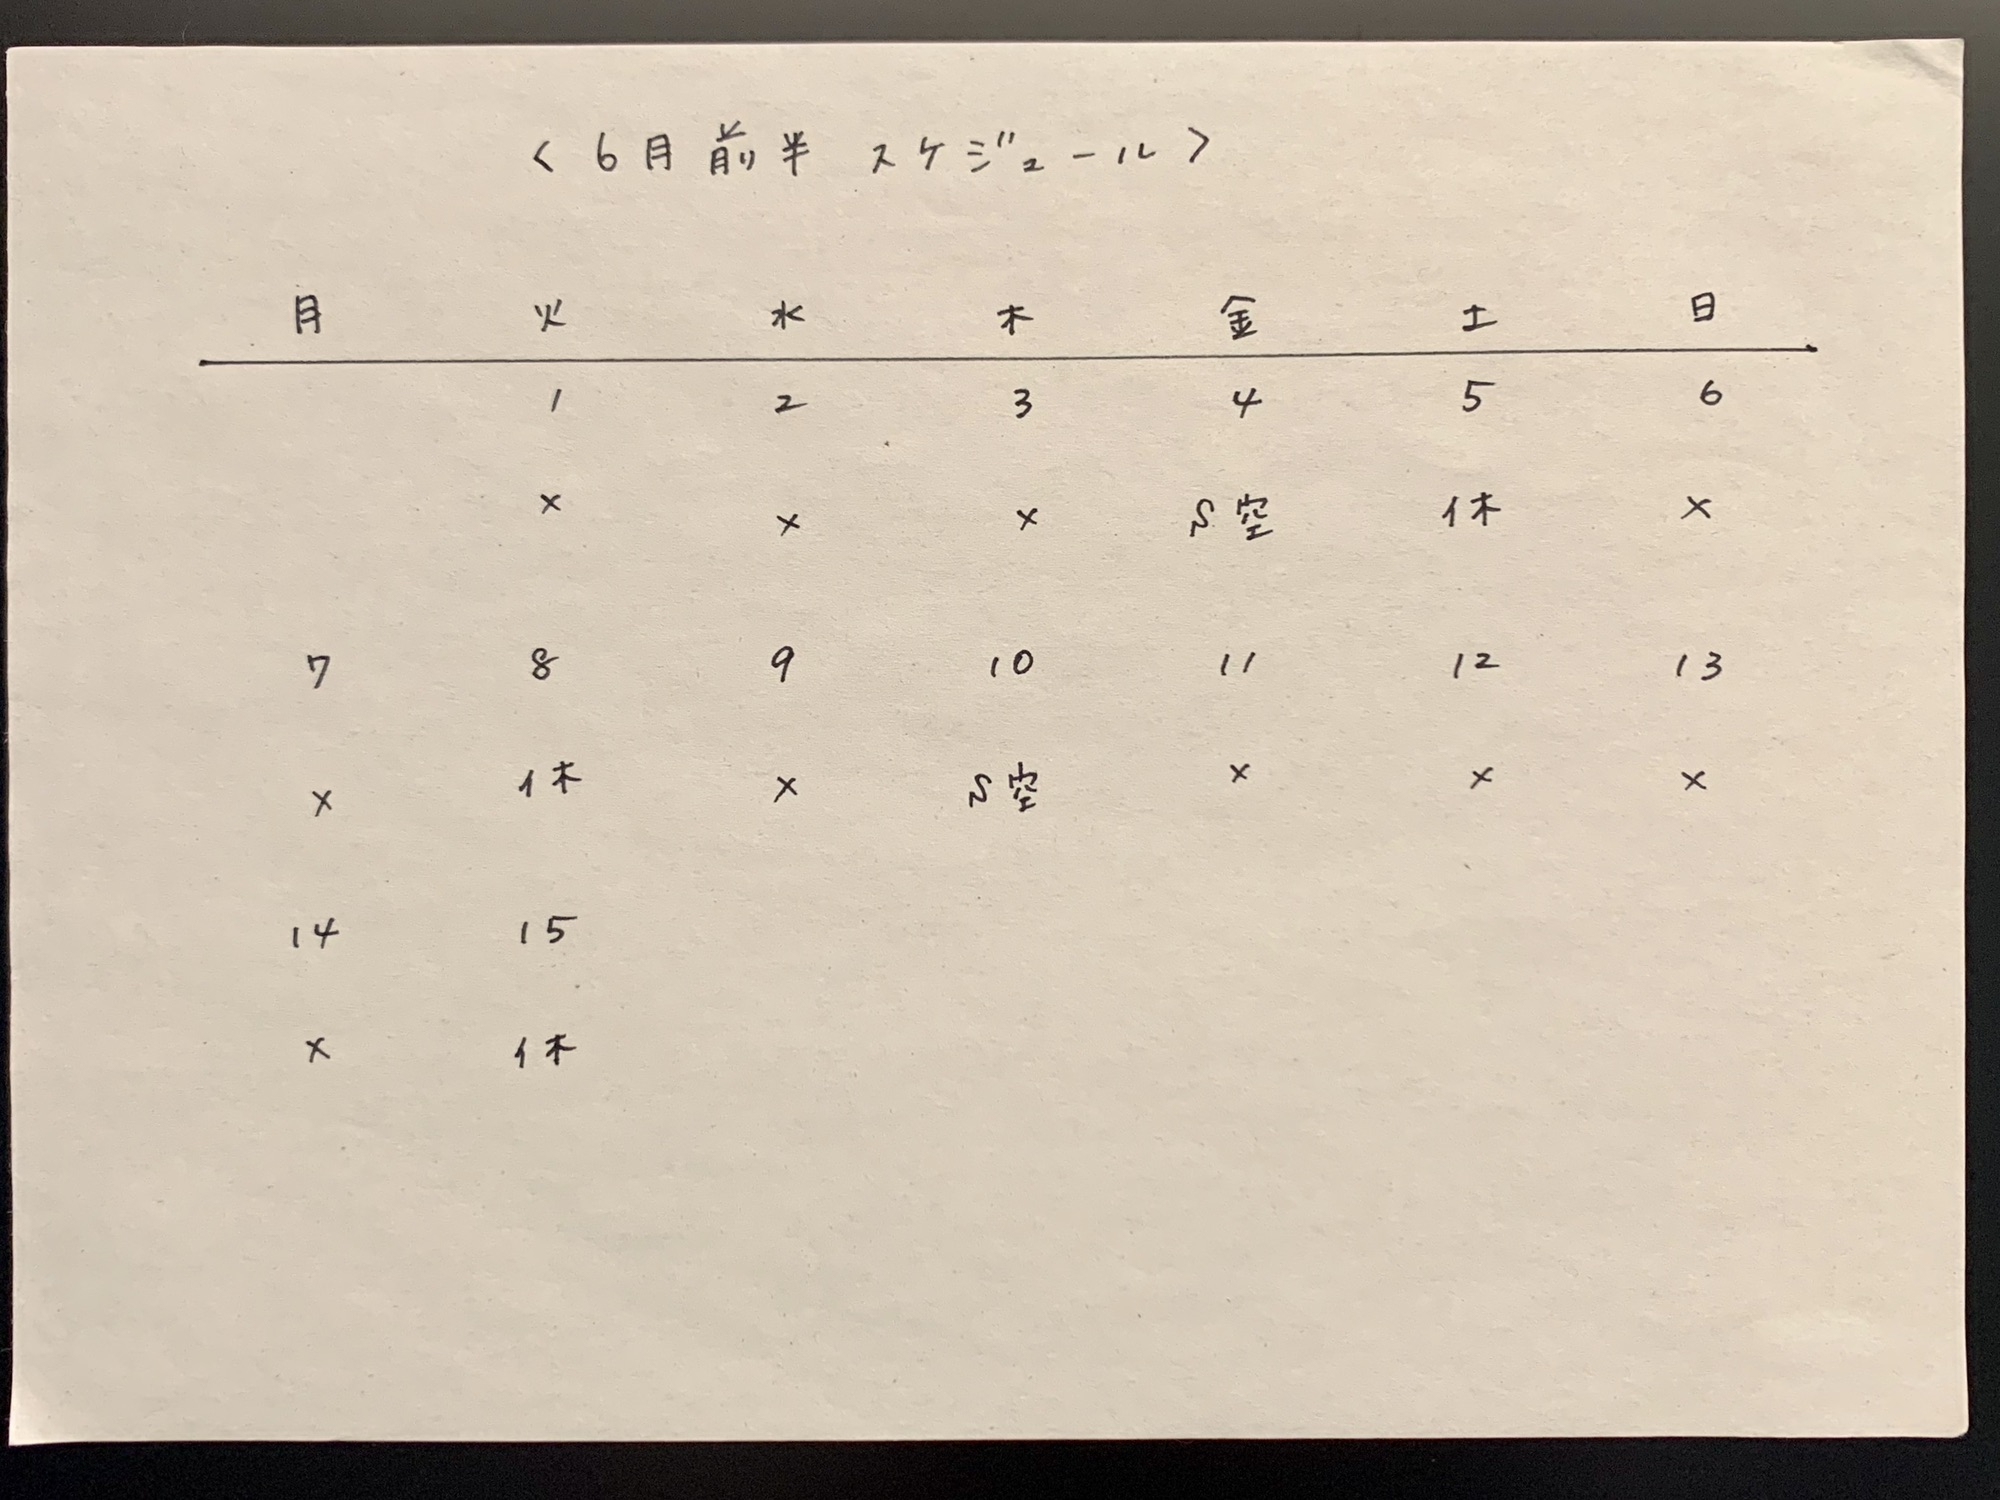 < 6月前半 スケジュール >
月 火 水 木 金 土 日
1 2 3 4 5 6
× × × 空 休 ×
7 8 9 10 11 12 13
× 休 × 空 × × ×
14 15
× 休